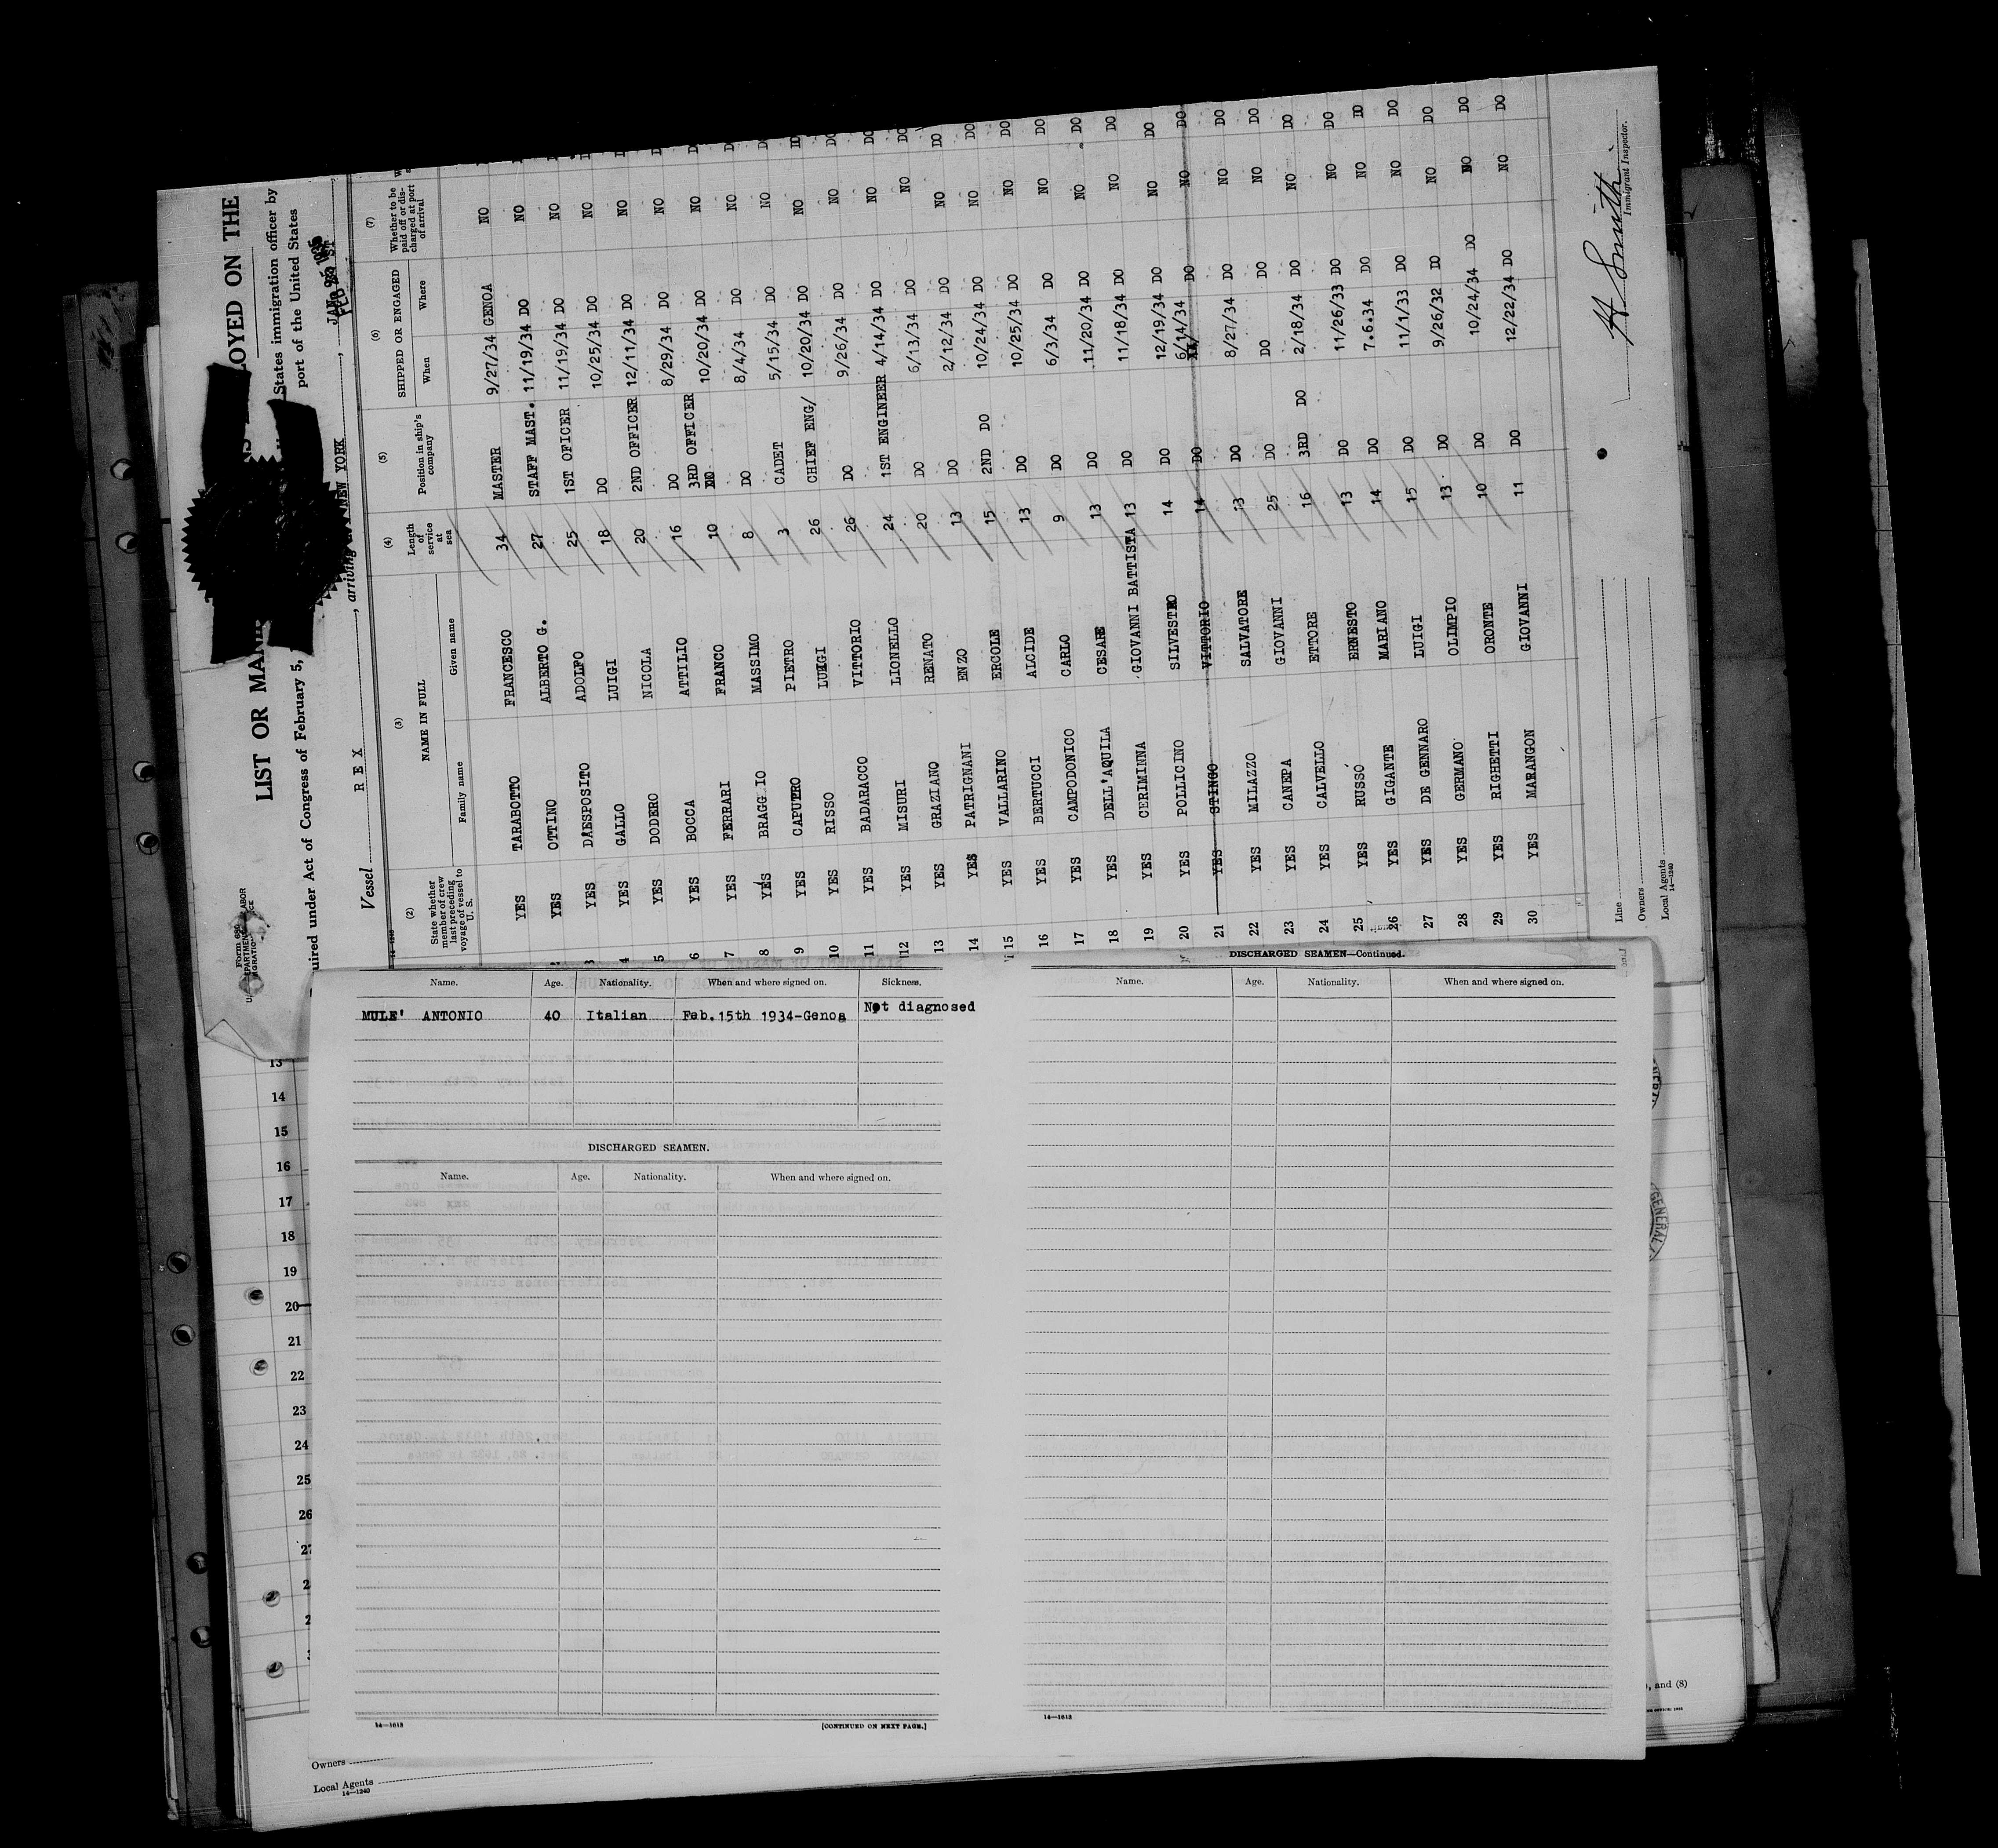 LIST OR
LOYED ON THE
uired under Act of Congress of February 5,
States immigration officer by
port of the United States
Vessel REX, arriving NEW YORK,
(2) (3) (4) (5) (6) (7)
State whether member of crew last preceding voyage of vessel to U. S.
NAME IN FULL
Family name Given name
Length of service at sea
Position in ship's company
SHIPPED OR ENGAGED
When Where
Whether to be paid off or discharged at port of arrival
YES TARABOTTO FRANCESCO 34 MASTER 9/27/34 GENOA NO
YES OTTINO ALBERTO G. 27 STAFF MAST. 11/19/34 DO NO
YES DAESPOSITO ADOLFO 25 1ST OFICER 11/19/34 DO NO
4 YES GALLO LUIGI 18 DO 10/25/34 DO NO
5 YES DODERO NICOLA 20 2ND OFFICER 12/11/34 DO NO
6 YES BOCCA ATTILIO 16 DO 8/29/34 DO NO
7 YES FERRARI FRANCO 10 3RD OFFICER 10/20/34 DO NO
8 YES BRAGGIO MASSIMO 8 DO 8/4/34 DO NO
9 YES CAPURRO PIETRO 3 CADET 5/15/34 DO NO
10 YES RISSO LUIGI 26 CHIEF ENG/ 10/20/34 DO NO
11 YES BADARACCO VITTORIO 26 DO 9/26/34 DO NO
12 YES MISURI LIONELLO 24 1ST ENGINEER 4/14/34 DO NO
13 YES GRAZIANO RENATO 20 DO 6/13/34 DO NO DO
14 YES PATRIGNANI ENZO 13 DO 2/12/34 DO NO DO
15 YES VALLARINO ERCOLE 15 2ND DO 10/24/34 DO NO DO
16 YES BERTUCCI ALCIDE 13 DO 10/25/34 DO NO DO
17 YES CAMPODONICO CARLO 9 DO 6/3/34 DO NO DO
18 YES DELL'AQUILA CESARE 13 DO 11/20/34 DO NO DO
19 YES CERIMINNA GIOVANNI BATTISTA 13 DO 11/18/34 DO NO DO
20 YES POLLICINO SILVESTRO 14 DO 12/19/34 DO NO DO
21 YES STINGO VITTORIO 14 DO 6/14/34 DO NO DO
22 YES MILAZZO SALVATORE 13 DO 8/27/34 DO NO DO
23 YES CANEPA GIOVANNI 25 DO DO DO NO DO
24 YES CALVELLO ETTORE 16 3RD DO 2/18/34 DO NO DO
25 YES RUSSO ERNESTO 13 DO 11/26/33 DO NO DO
26 YES GIGANTE MARIANO 14 DO 7.6.34 DO NO DO
27 YES DE GENNARO LUIGI 15 DO 11/1/33 DO NO DO
28 YES GERMANO OLIMPIO 13 DO 9/26/32 DO NO DO
29 YES RIGHETTI ORONTE 10 DO 10/24/34 DO NO DO
30 YES MARANGON GIOVANNI 11 DO 12/22/34 DO NO DO
Line
Owners
Local Agents
14—1240
H Smith
Immigrant Inspector.
Name. Age. Nationality. When and where signed on. Sickness.
MULE' ANTONIO 40 Italian Feb.15th 1934-Genoa Not diagnosed
DISCHARGED SEAMEN.
Name. Age. Nationality. When and where signed on.
14—1613
[CONTINUED ON NEXT PAGE.]
DISCHARGED SEAMEN—Continued.
Name. Age. Nationality. When and where signed on.
14—1613
13
14
15
16
17
18
19
20
21
22
23
24
25
26
Owners
Local Agents
14—1240
, and (8)
GENERAL